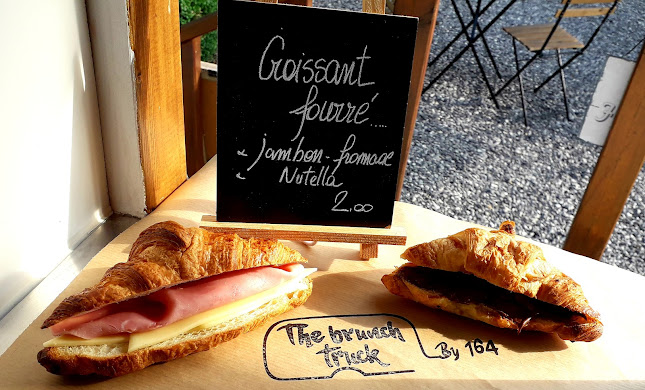 Croissant
fourré....
- jambon - fromage
- Nutella
2.00
The brunch
truck
By 164